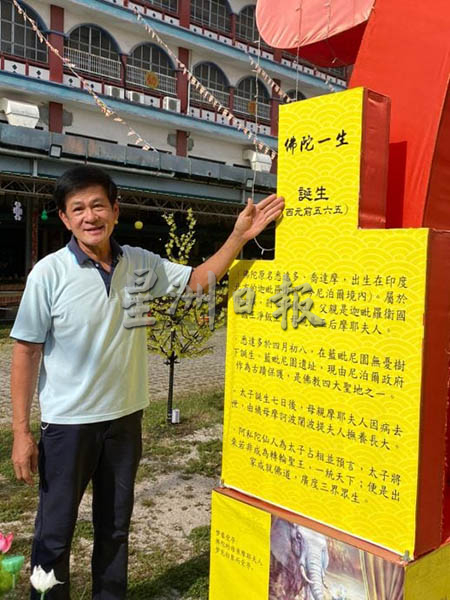 佛陀一生
誕生
(西元前五六五)
佛陀原名悉達多．喬達摩，出生在印度
尼泊爾境內)。屬於
父親是迦毗羅衛國
后摩耶夫人。
悉達多於四月初八，在藍毗尼園無憂樹
下誕生。藍毗尼園遺址，現由尼泊爾政府
作為古蹟保護，是佛教四大聖地之一。
太子誕生七日後，母親摩耶夫人因病去
世，由姨母摩訶波闍波提夫人撫養長大。
阿私陀仙人為太子占相並預言，太子將
來若非成為轉輪聖王，一統天下；便是出
家成就佛道，廣度三界眾生。
星洲日報